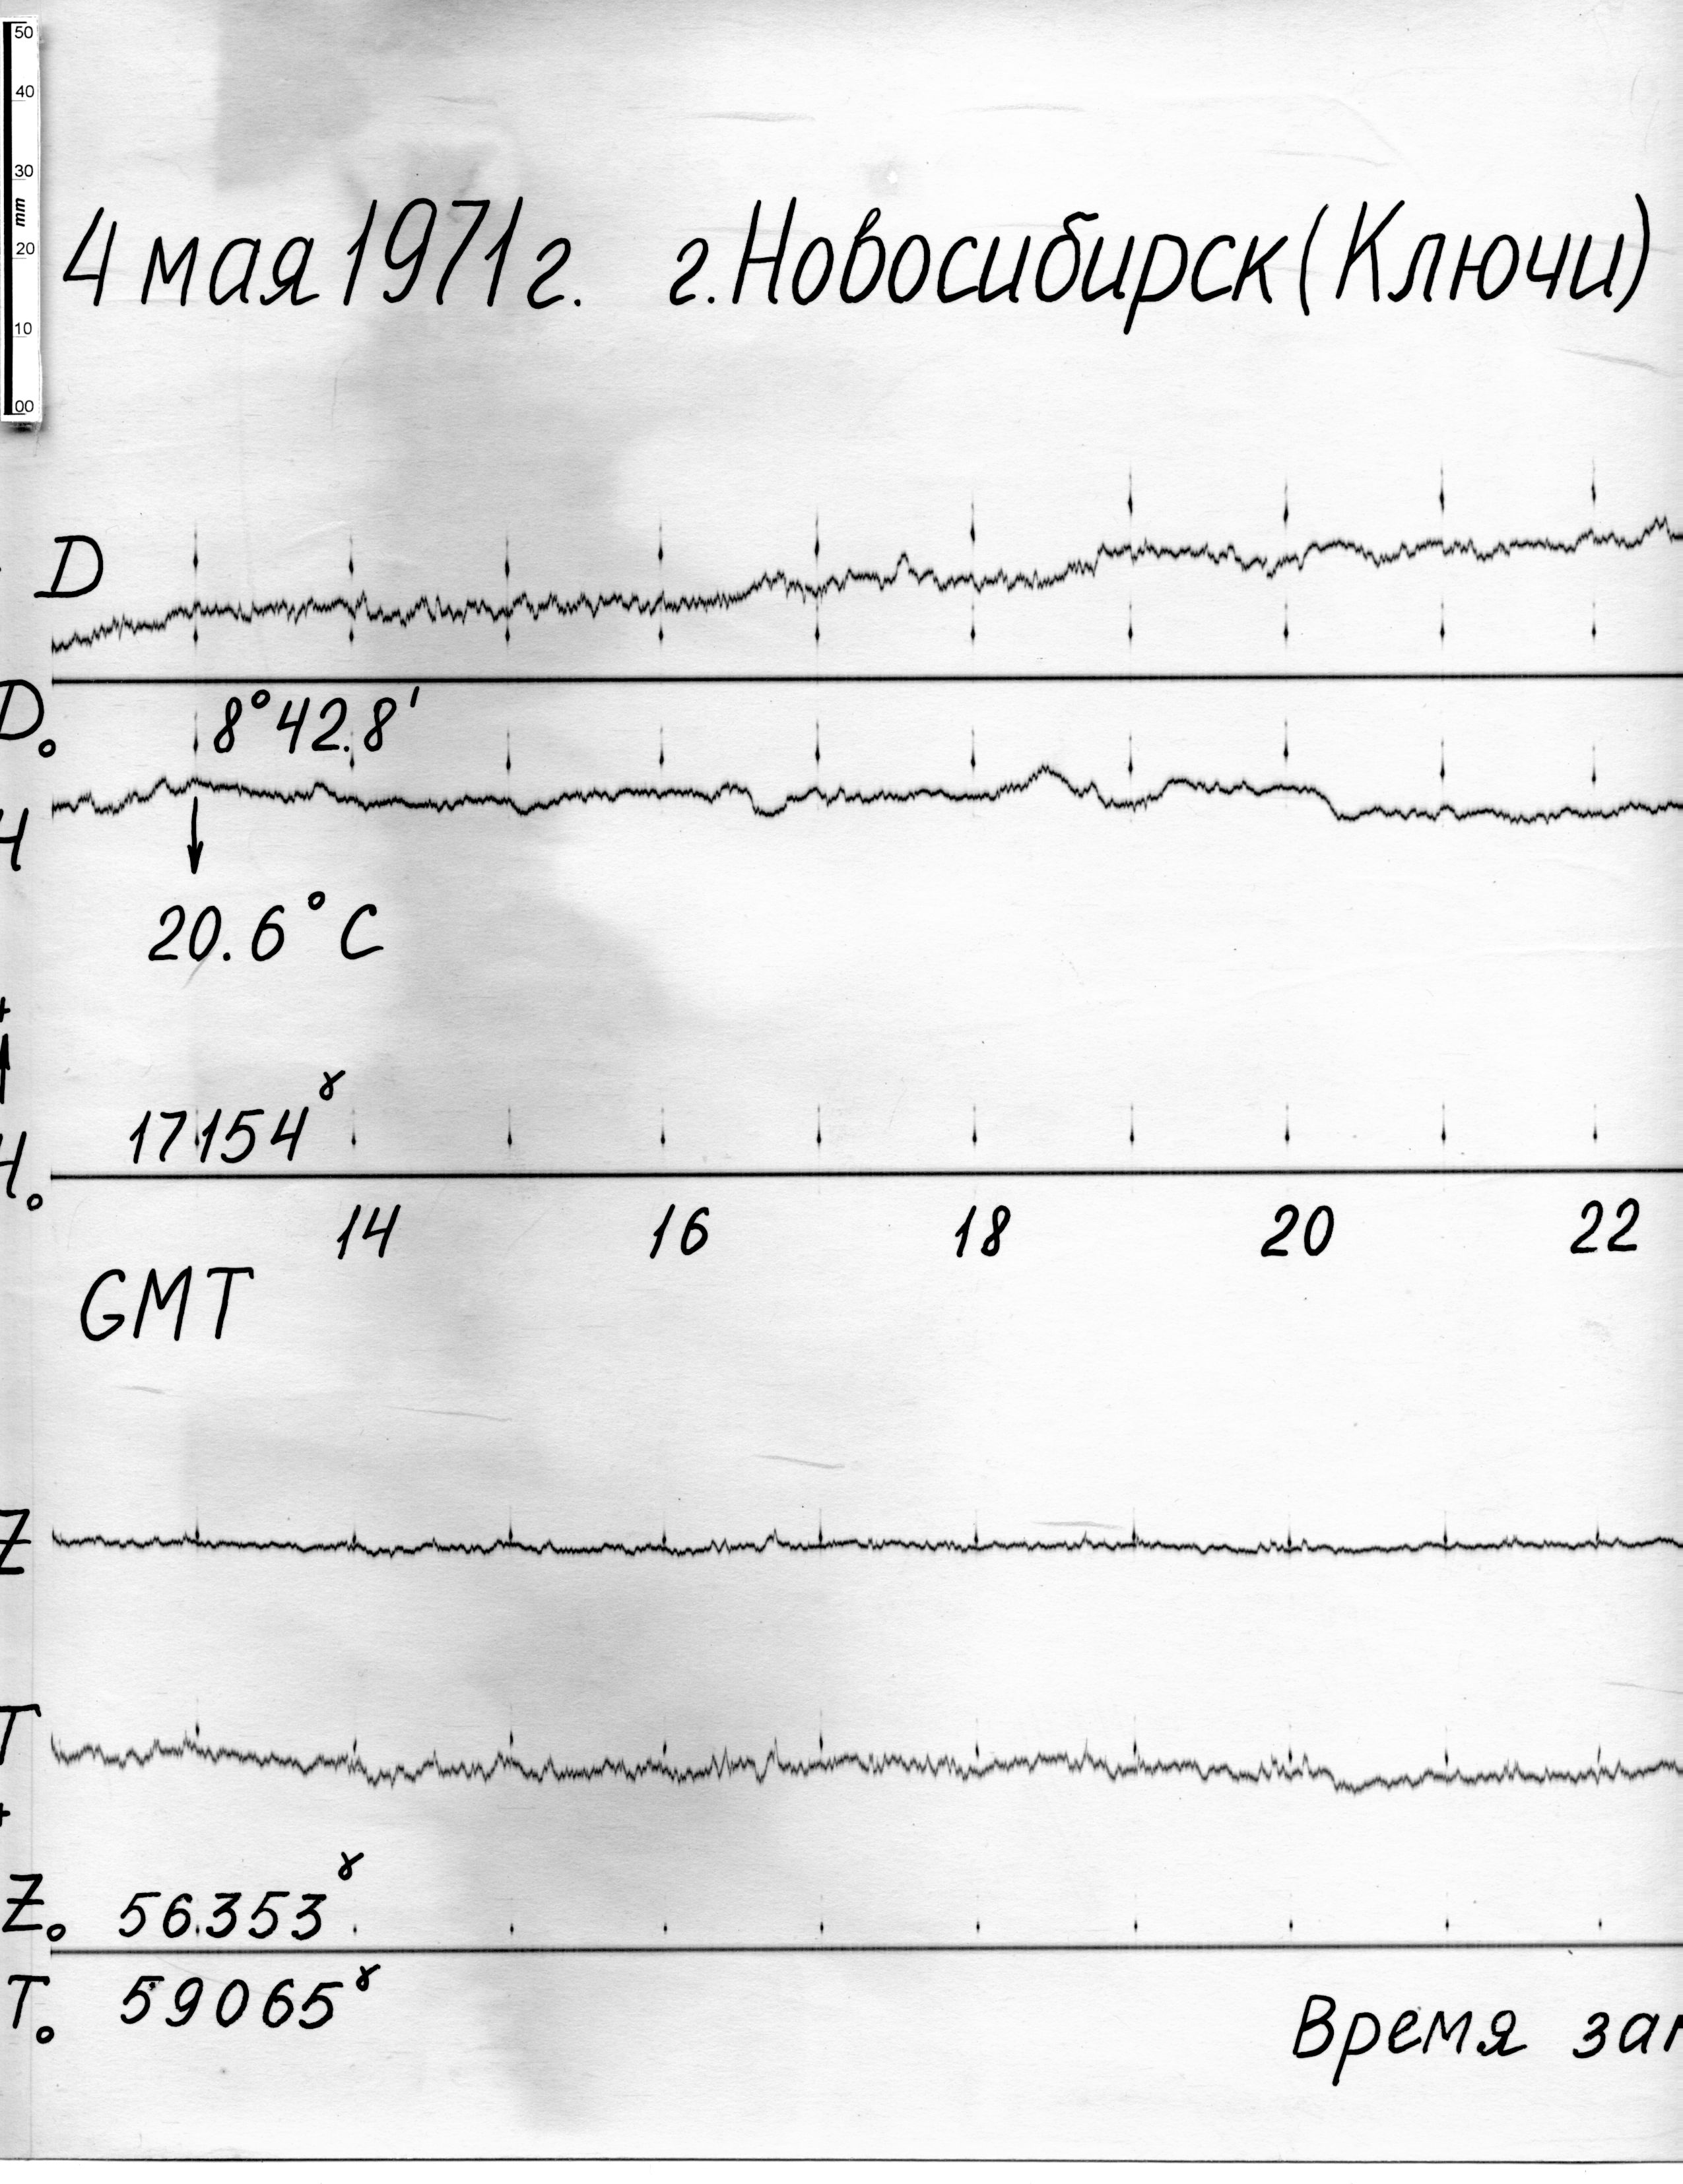 50
40
30
mm
20
10
00
4 мая 1971 г. г. Новосибирск (Ключи)
D
D₀ 8°42.8'
H
20.6°C
+
17154ˠ
H₀
14 16 18 20 22
GMT
Z
T
+
Z₀ 56353ˠ
T₀ 59065ˠ
Время